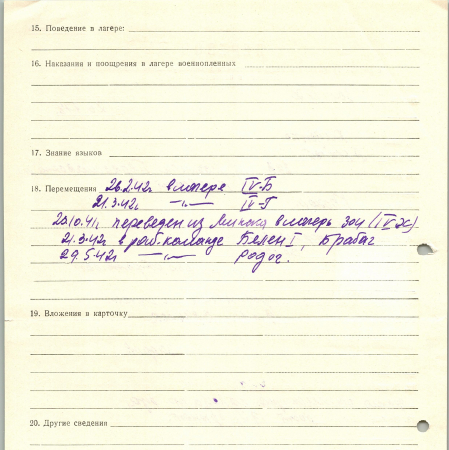 15. Поведение в лагере:
16. Наказания и поощрения в лагере военнопленных
17. Знание языков
18. Перемещения 26.2.42г. в лагере IV-Б
21.3.42г. —"— IV-Г
20.10.41г. переведен из в лагерь 304 (IV-X).
21.3.42г. в раб. команде Белен I, Брабаг
29.5.42г. —"—
19. Вложения в карточку
20. Другие сведения